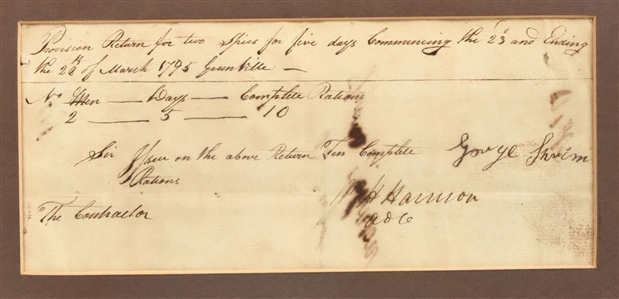 Provision Return for two Spies for five days Commencing the 23d and Ending
the 28th of March 1795 Grunville —
No Men — Days — Complete Rations
2 — 5 — 10
Sir
Issue on the above Return Ten Complete
Rations
George
Wm H Harrison
ADC
The Contractor